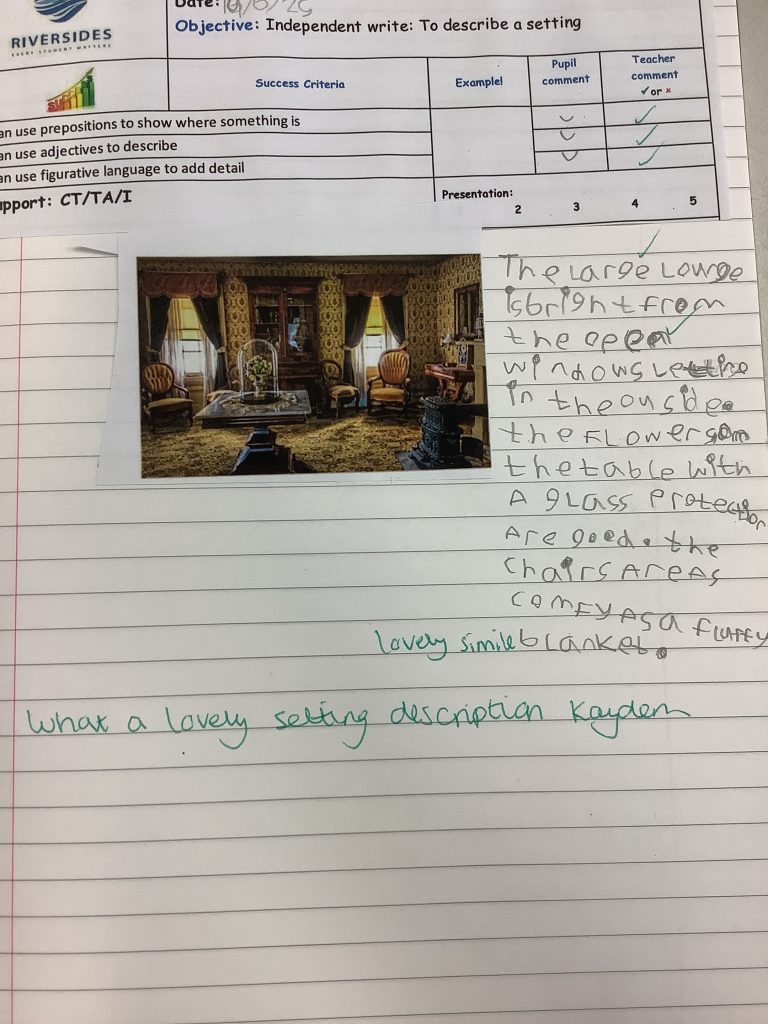 Date:
RIVERSIDES
EVERY STUDENT MATTERS
Objective: Independent write: To describe a setting
Success Criteria
Example!
Pupil comment
Teacher comment
✓or ×
an use prepositions to show where something is
an use adjectives to describe
an use figurative language to add detail
pport: CT/TA/I
Presentation:
2 3 4 5
The Large Lounge
is bright from
the open
windows
in the ouside.
the FLowers on
the table with
A gLASS Protection
Are good. the
chairs Are AS
comFy AS a FLuFFy
bLanket.
lovely simile
What a lovely setting description Kayden